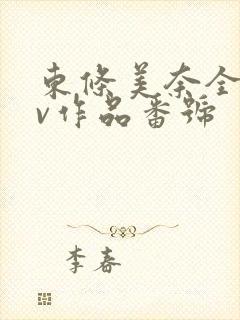 東條美奈全
v作品番號
李春